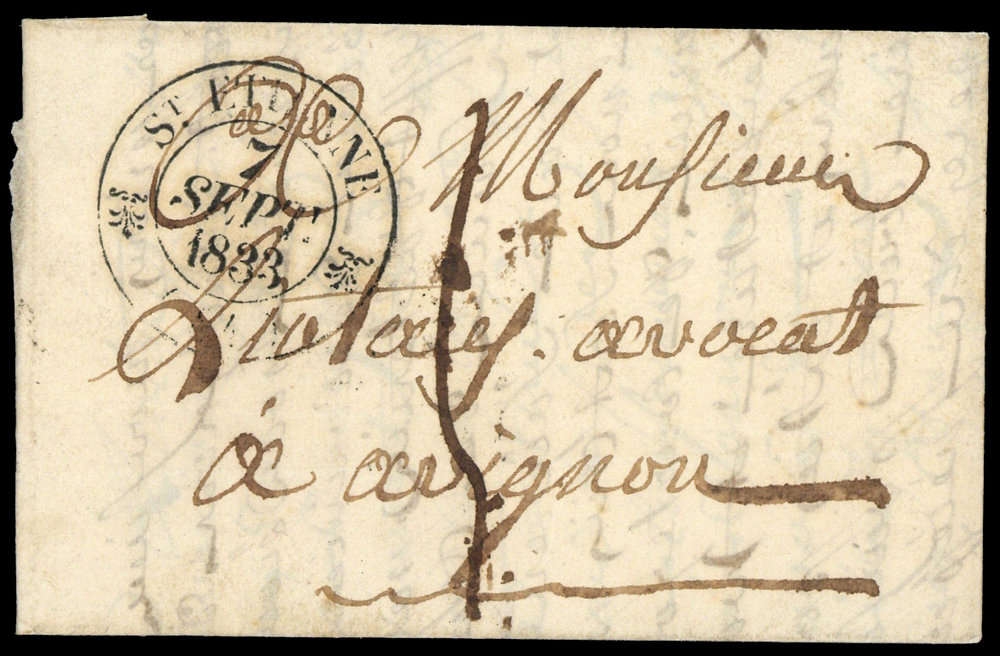 ST. ETIENNE
7
SEPT.
1833
A Monsieur
avocat
à avignon